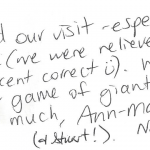 d our visit - espe
(we were relieve
cent correct i).
game of giant
much, Ann-ma
(& Stuart!). N